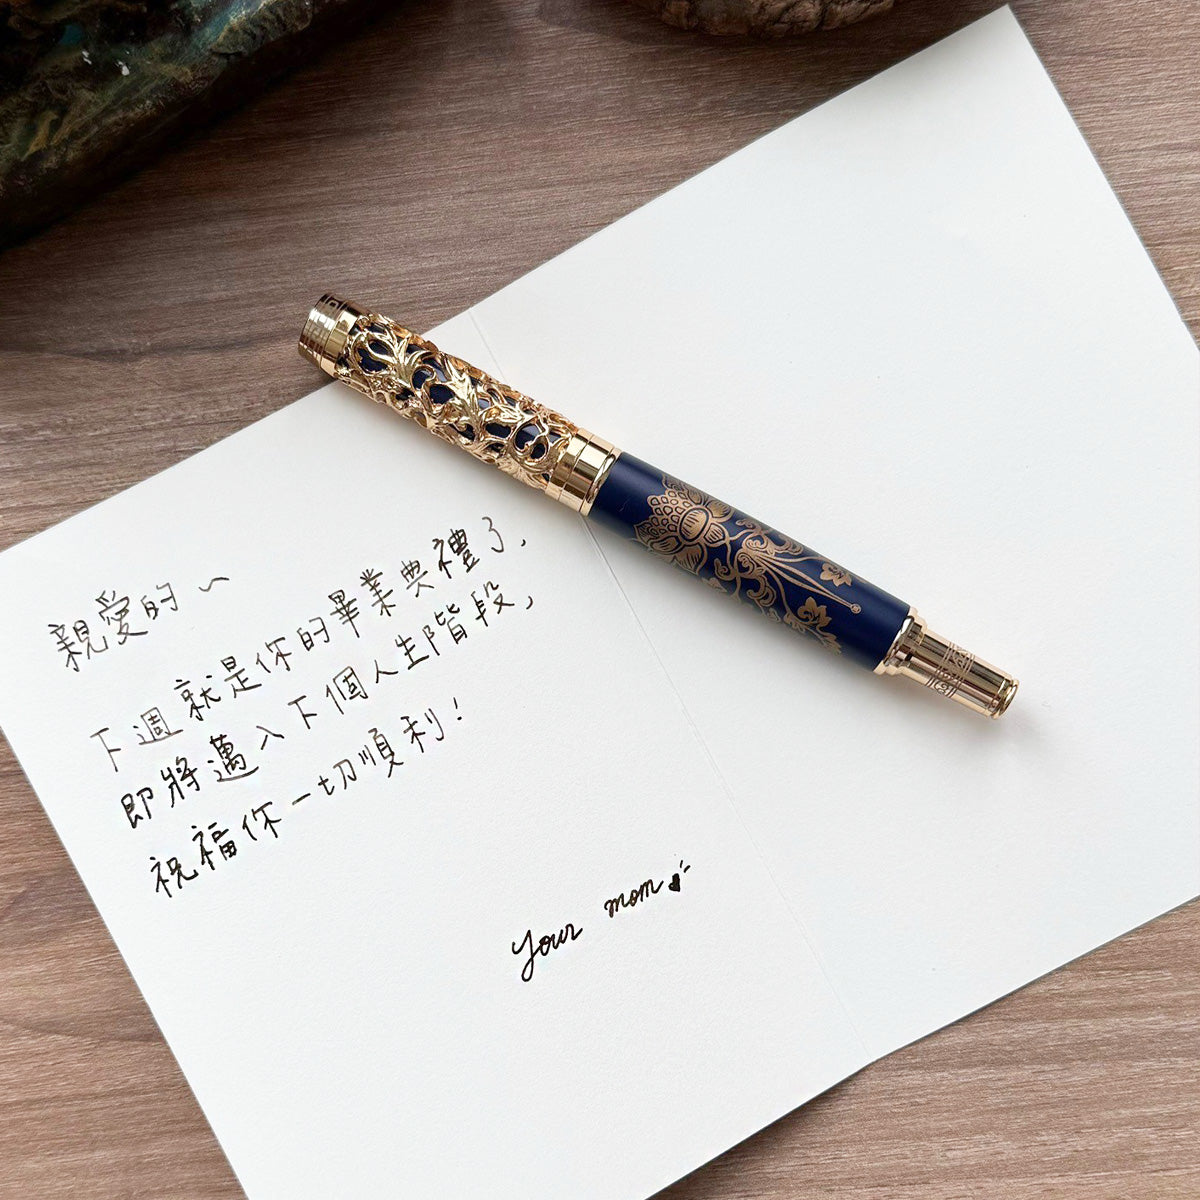 親愛的~
下週就是你的畢業典禮了,
即將邁入下個人生階段,
祝福你一切順利!
Your mom